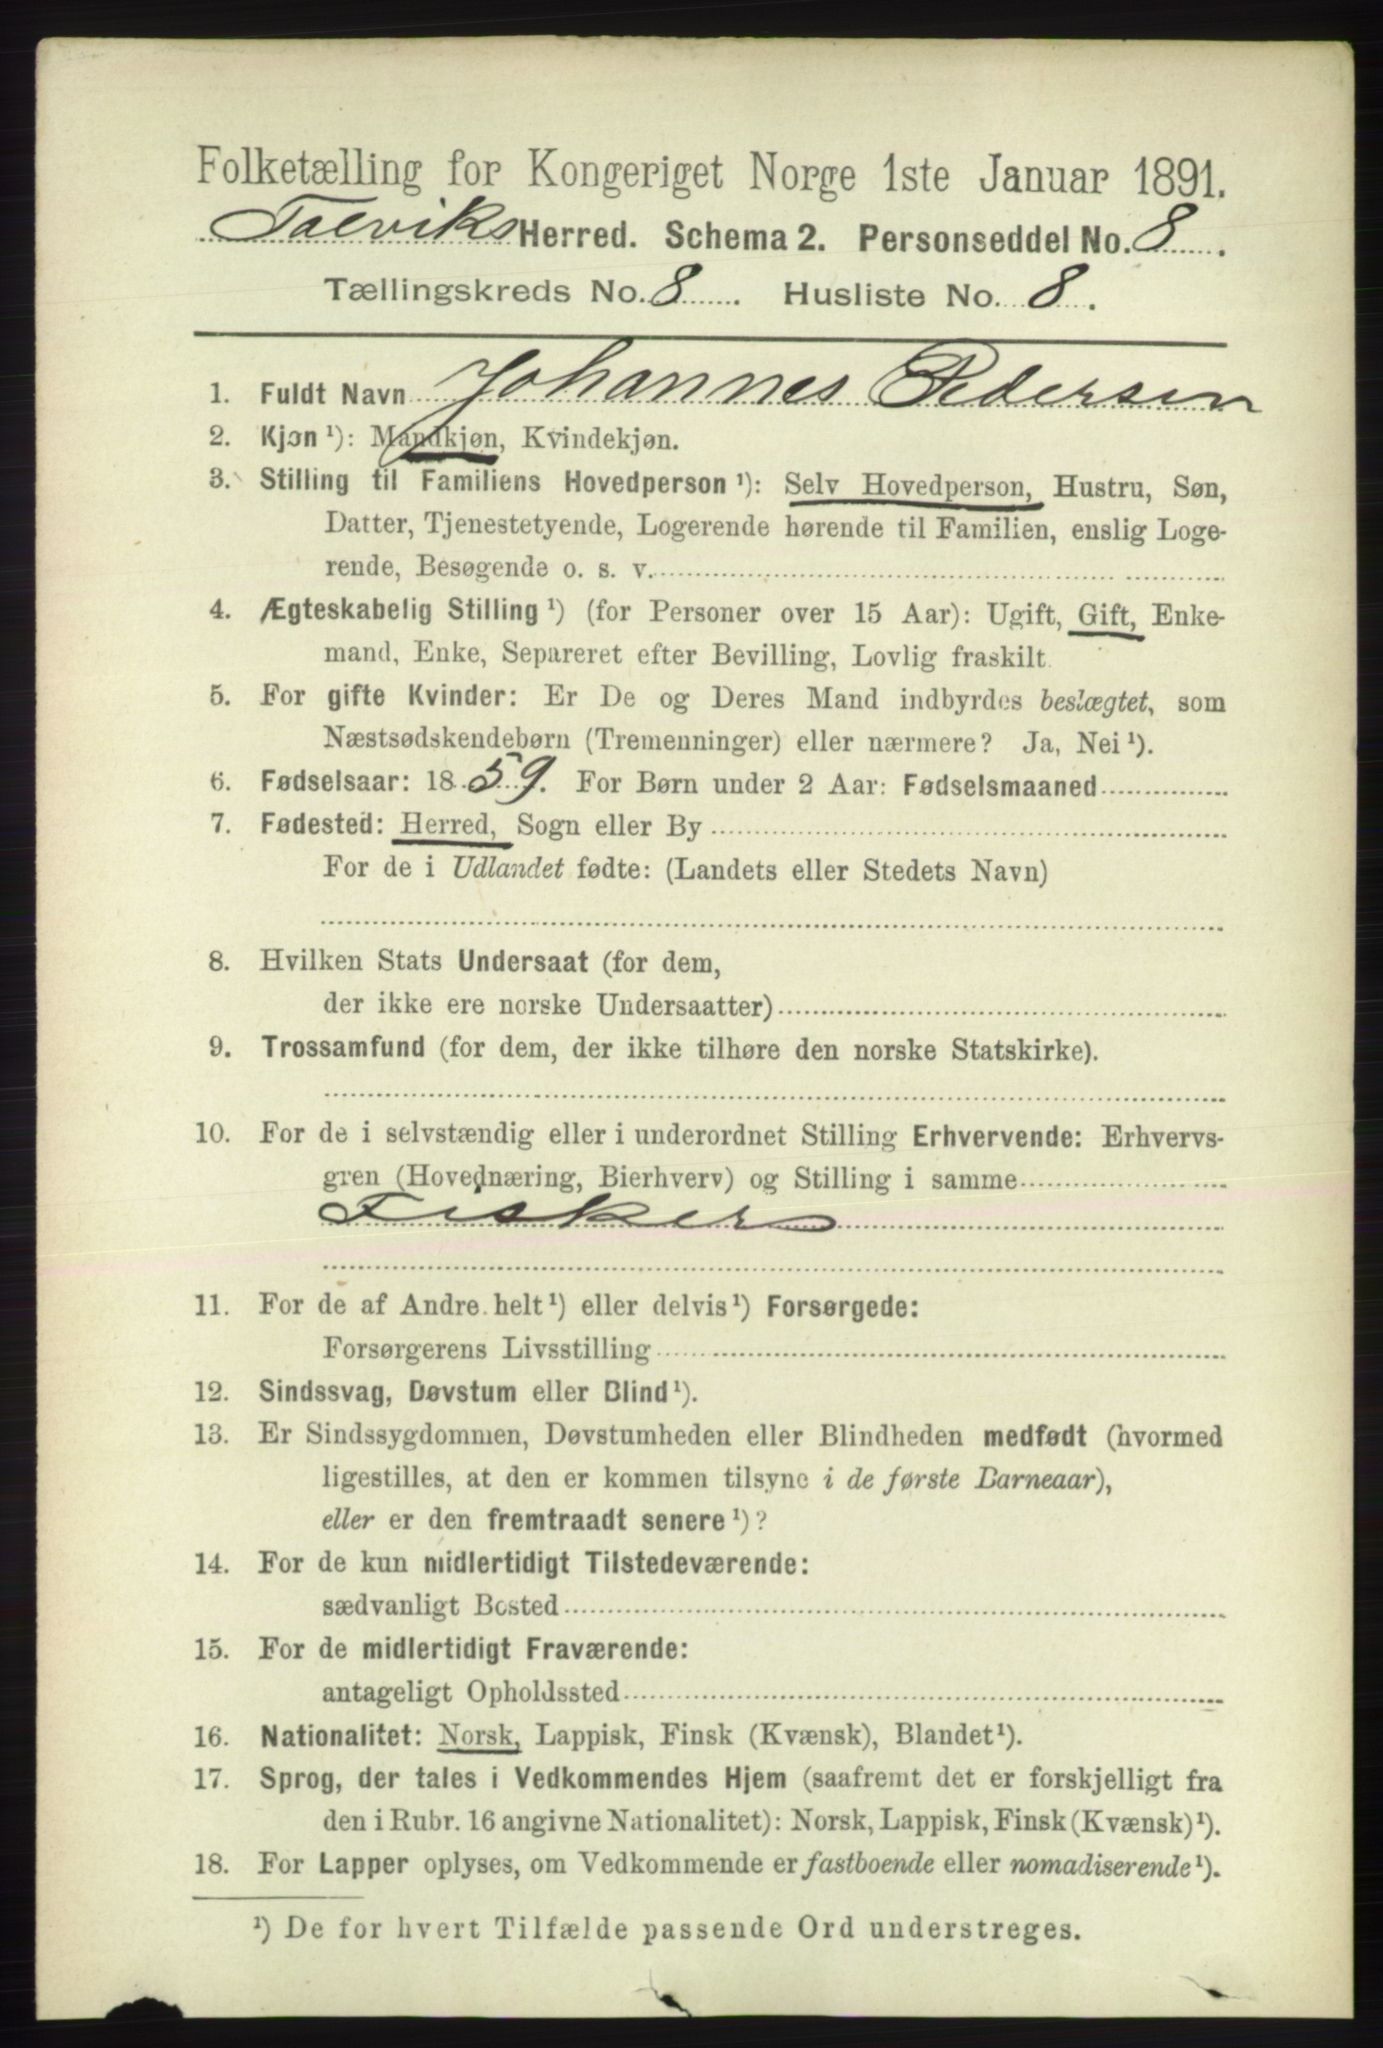 Folketælling for Kongeriget Norge 1ste Januar 1891.
Talviks Herred. Schema 2. Personseddel No. 8.
Tællingskreds No. 8. Husliste No. 8.
1. Fuldt Navn Johannes Pedersen
2. Kjøn ¹): Mandkjøn, Kvindekjøn.
3. Stilling til Familiens Hovedperson ¹): Selv Hovedperson, Hustru, Søn,
Datter, Tjenestetyende, Logerende hørende til Familien, enslig Loge-
rende, Besøgende o. s. v.
4. Ægteskabelig Stilling ¹) (for Personer over 15 Aar): Ugift, Gift, Enke-
mand, Enke, Separeret efter Bevilling, Lovlig fraskilt.
5. For gifte Kvinder: Er De og Deres Mand indbyrdes beslægtet, som
Næstsødskendebørn (Tremenninger) eller nærmere? Ja, Nei ¹).
6. Fødselsaar: 1859. For Børn under 2 Aar: Fødselsmaaned
7. Fødested: Herred, Sogn eller By
For de i Udlandet fødte: (Landets eller Stedets Navn)
8. Hvilken Stats Undersaat (for dem,
der ikke ere norske Undersaatter)
9. Trossamfund (for dem, der ikke tilhøre den norske Statskirke).
10. For de i selvstændig eller i underordnet Stilling Erhvervende: Erhvervs-
gren (Hovednæring, Bierhverv) og Stilling i samme
Fisker
11. For de af Andre helt ¹) eller delvis ¹) Forsørgede:
Forsørgerens Livsstilling
12. Sindssvag, Døvstum eller Blind ¹).
13. Er Sindssygdommen, Døvstumheden eller Blindheden medfødt (hvormed
ligestilles, at den er kommen tilsyne i de første Barneaar),
eller er den fremtraadt senere ¹)?
14. For de kun midlertidigt Tilstedeværende:
sædvanligt Bosted
15. For de midlertidigt Fraværende:
antageligt Opholdssted
16. Nationalitet: Norsk, Lappisk, Finsk (Kvænsk), Blandet ¹).
17. Sprog, der tales i Vedkommendes Hjem (saafremt det er forskjelligt fra
den i Rubr. 16 angivne Nationalitet): Norsk, Lappisk, Finsk (Kvænsk) ¹).
18. For Lapper oplyses, om Vedkommende er fastboende eller nomadiserende ¹).
¹) De for hvert Tilfælde passende Ord understreges.